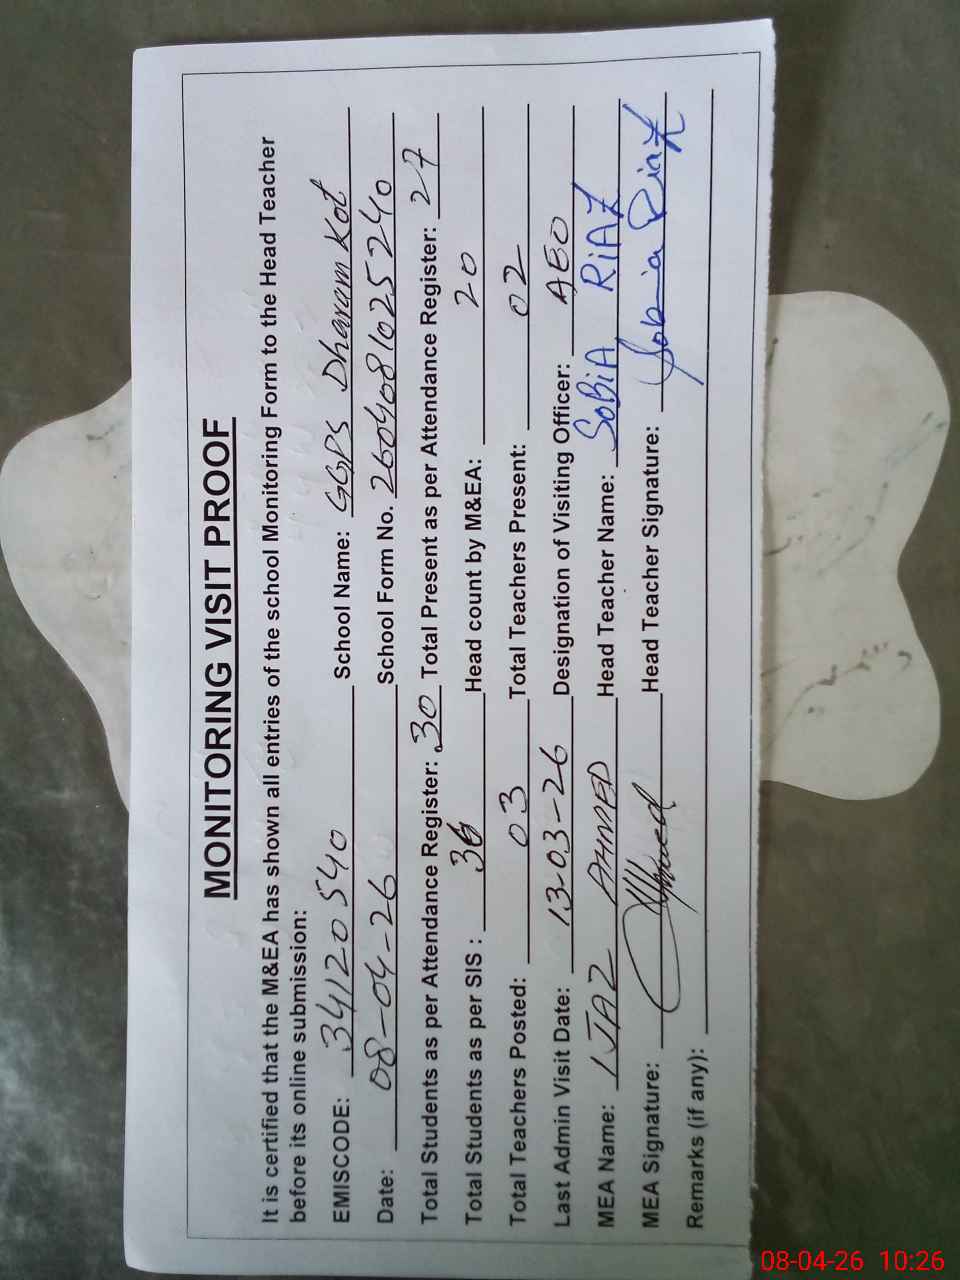 MONITORING VISIT PROOF
It is certified that the M&EA has shown all entries of the school Monitoring Form to the Head Teacher
before its online submission:
EMISCODE: 34120540 School Name: GGPS Dharam Kot
Date: 08-04-26 School Form No. 2604081025240
Total Students as per Attendance Register: 30 Total Present as per Attendance Register: 27
Total Students as per SIS : 36 Head count by M&EA: 20
Total Teachers Posted: 03 Total Teachers Present: 02
Last Admin Visit Date: 13-03-26 Designation of Visiting Officer: AEO
MEA Name: IJAZ AHMED Head Teacher Name: SOBIA RIAZ
MEA Signature: Ahmed Head Teacher Signature: Sobia Riaz
Remarks (if any):
08-04-26 10:26